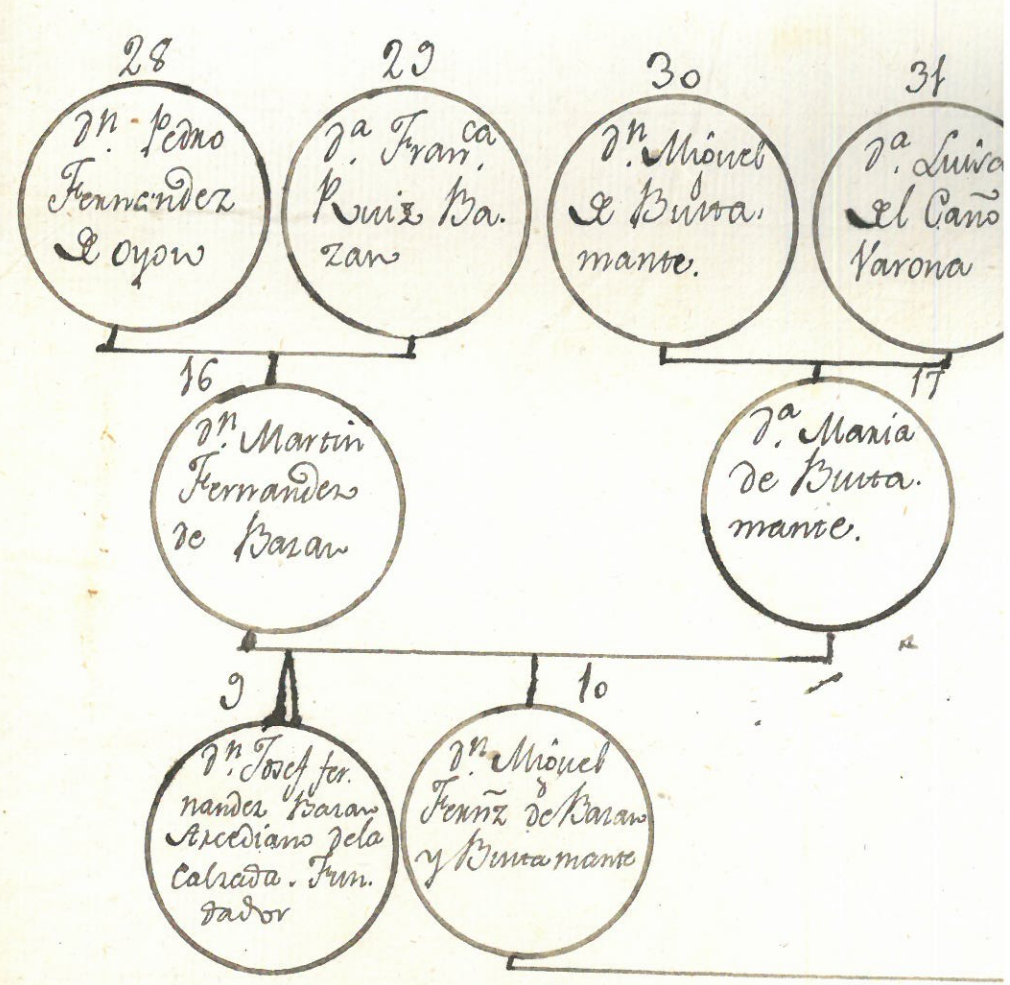 28
Dn. Pedro
Fernandez
de oyon
29
Da. Franca.
Ruiz Ba.
zan
30
Dn. Miguel
de Busta.
mante.
31
Da. Luisa
del Caño
Varona
16
Dn. Martin
Fernandez
de Bazan
17
Da. Maria
de Busta.
mante.
9
Dn. Josef fer.
nandez Bazan
Arcediano dela
Calzada. Fun.
dador
10
Dn. Miguel
Fernz̃ de Bazan
y Bustamante